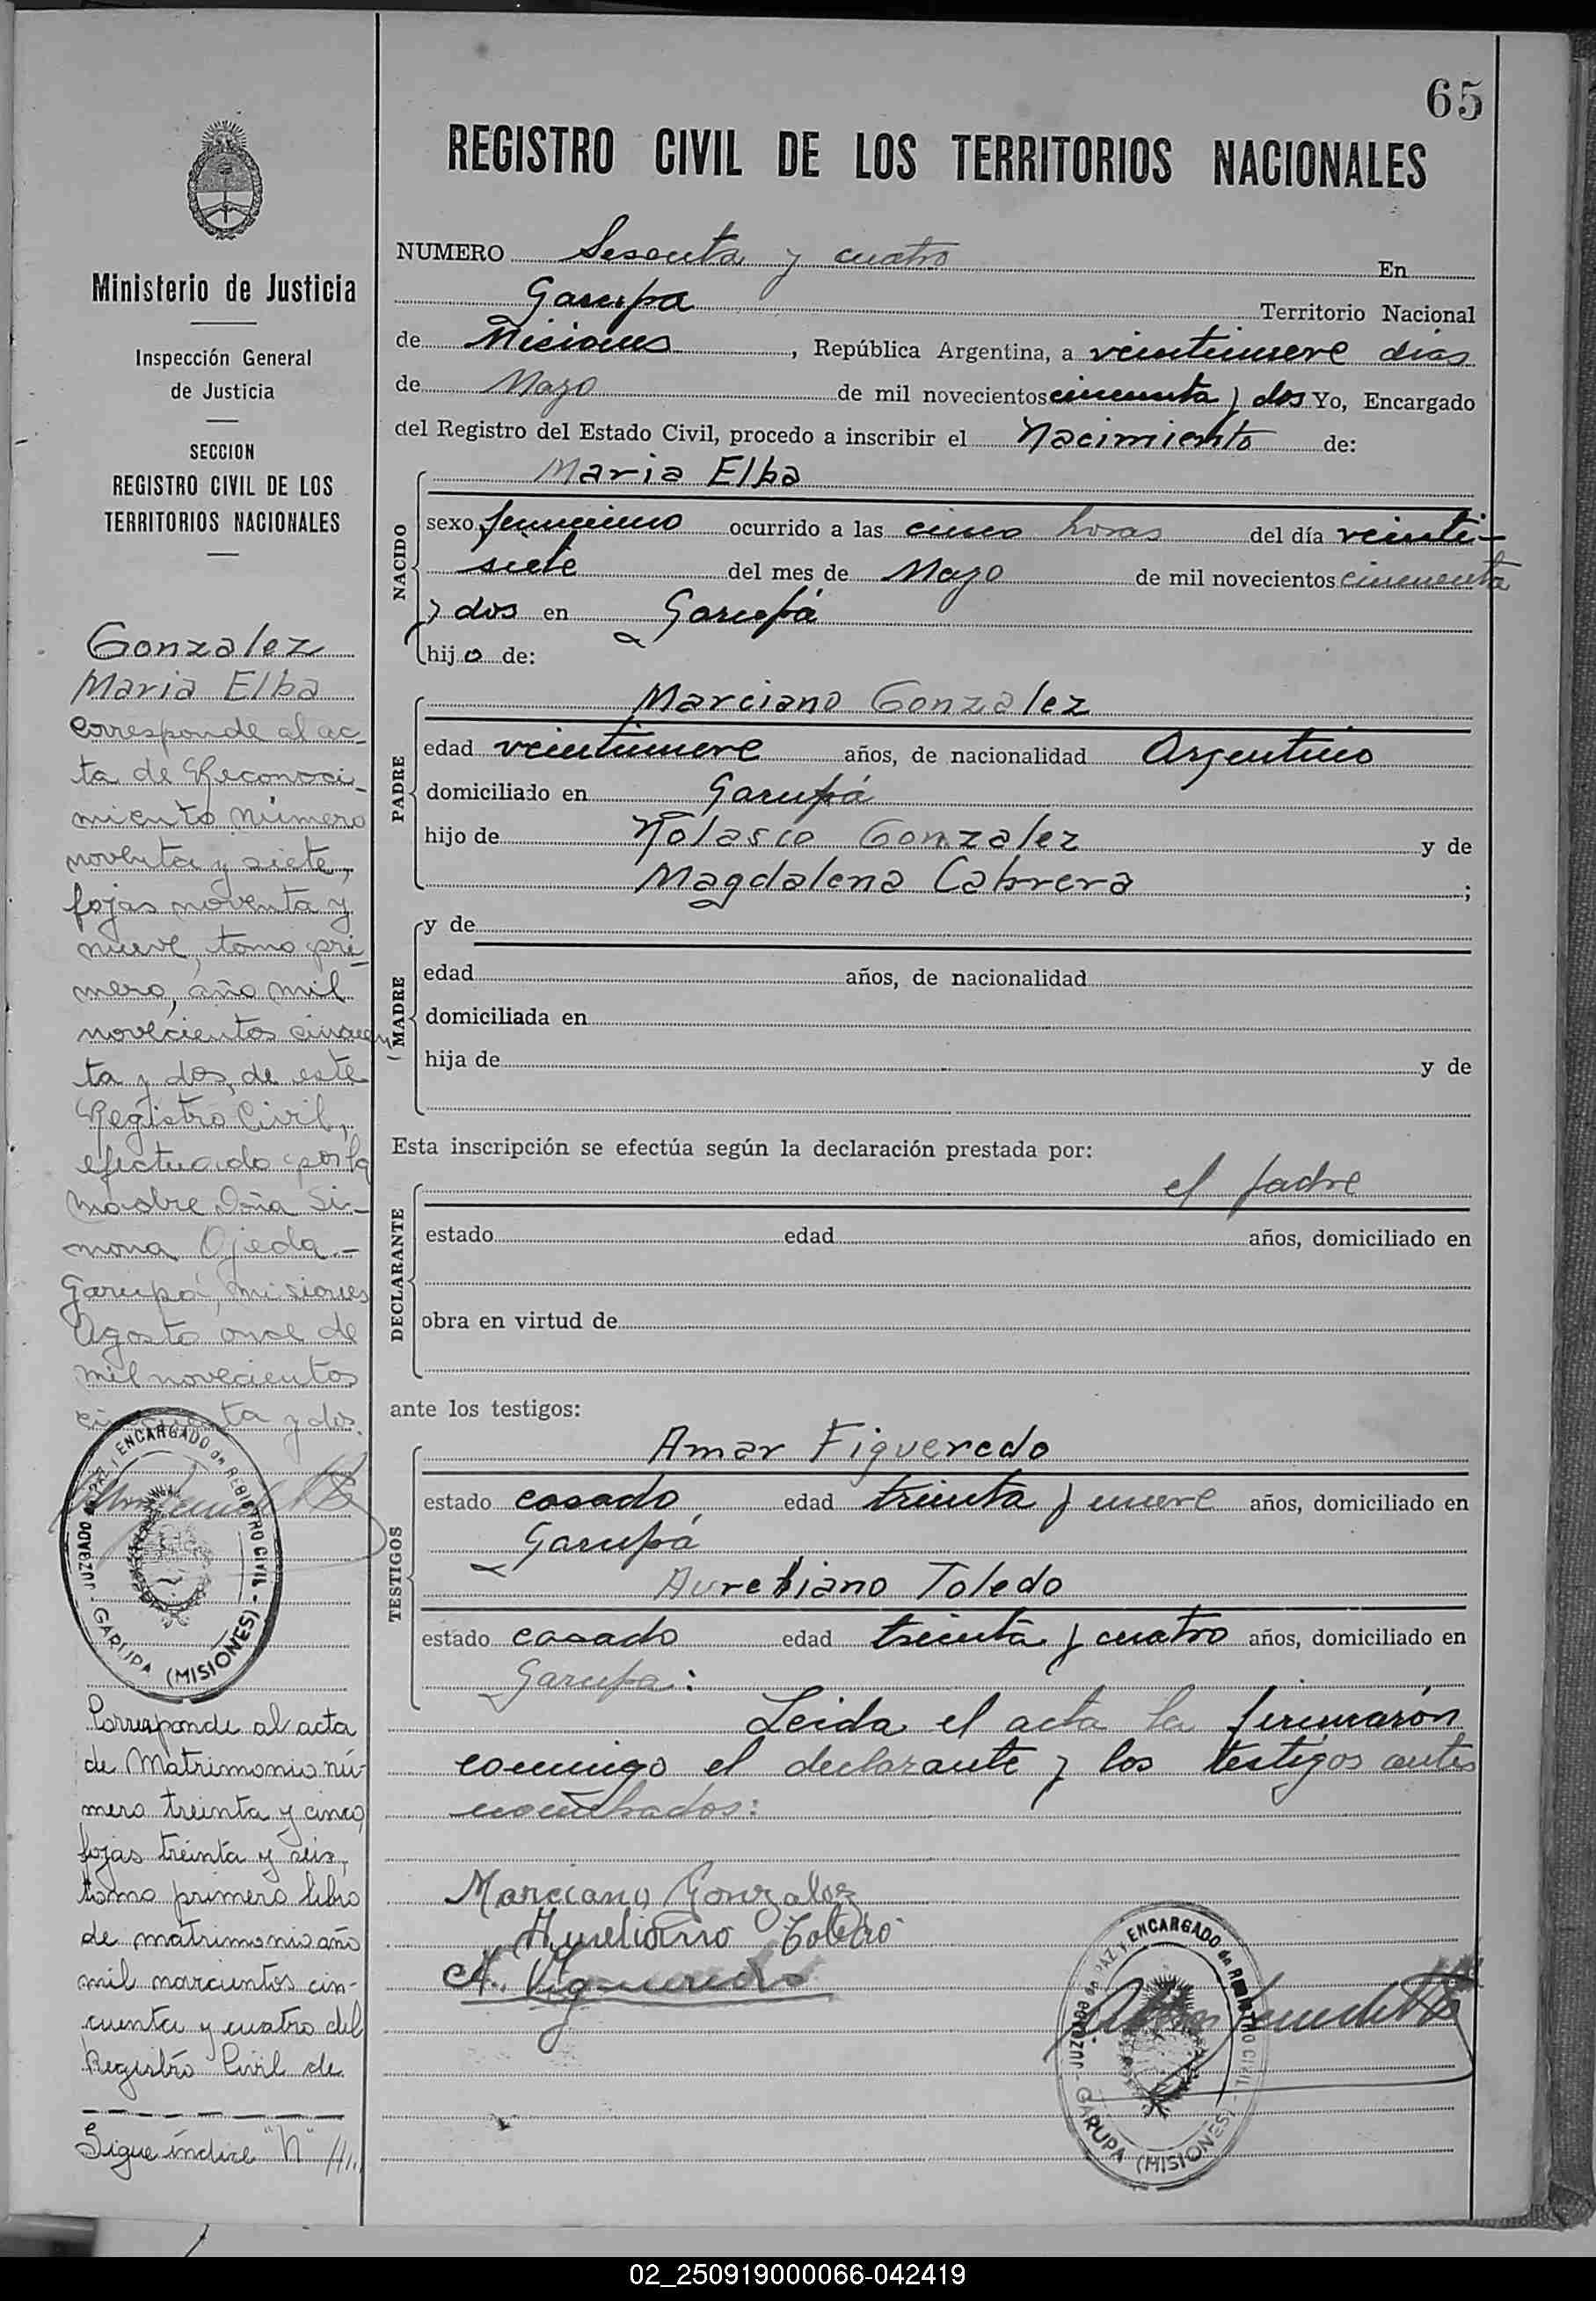 65
REGISTRO CIVIL DE LOS TERRITORIOS NACIONALES
Ministerio de Justicia
Inspección General
de Justicia
SECCION
REGISTRO CIVIL DE LOS
TERRITORIOS NACIONALES
Gonzalez
Maria Elba
Corresponde al ac-
ta de Reconoci-
miento número
noventa y siete,
fojas noventa y
nueve, tomo pri-
mero, año mil
novecientos cincuen
ta y dos, de este
Registro Civil,
efectuado por la
madre Doña Si-
mona Ojeda.-
Garupá, Misiones
Agosto once de
mil novecientos
cincuenta y dos.
JUZGADO de PAZ y ENCARGADO de REGISTRO CIVIL - GARUPA (MISIONES)
Corresponde al acta
de Matrimonio nú-
mero treinta y cinco,
fojas treinta y seis,
tomo primero libro
de matrimonio año
mil novecientos cin-
cuenta y cuatro del
Registro Civil de
Sigue índice "N" ///..
NUMERO Sesenta y cuatro En
Garupa Territorio Nacional
de Misiones, República Argentina, a veintinueve dias
de Mayo de mil novecientos cincuenta y dos Yo, Encargado
del Registro del Estado Civil, procedo a inscribir el Nacimiento de:
NACIDO
Maria Elba
sexo femenino ocurrido a las cinco horas del día veinti-
siete del mes de Mayo de mil novecientos cincuenta
y dos en Garupá
hijo de:
PADRE
Marciano Gonzalez
edad veintinueve años, de nacionalidad Argentino
domiciliado en Garupá
hijo de Nolasco Gonzalez y de
Magdalena Cabrera ;
MADRE
y de
edad años, de nacionalidad
domiciliada en
hija de y de
Esta inscripción se efectúa según la declaración prestada por:
DECLARANTE
el padre
estado edad años, domiciliado en
obra en virtud de
ante los testigos:
TESTIGOS
Amar Figueredo
estado casado edad treinta y nueve años, domiciliado en
Garupá
Aureliano Toledo
estado casado edad treinta y cuatro años, domiciliado en
Garupa:
Leida el acta la firmarón
conmigo el declarante y los testigos antes
nombrados:
Marciano Gonzalez
Aureliano Toledo
A. Figueredo
JUZGADO de PAZ y ENCARGADO de REGISTRO CIVIL - GARUPA (MISIONES)
02_250919000066-042419